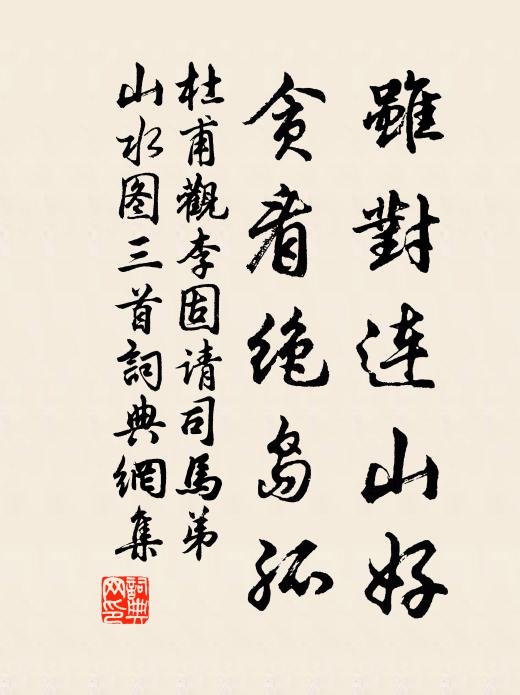 雖對連山好
貪看绝島孤
杜甫觀李固请司馬弟
山水图三首詞典網集
詞典
网印